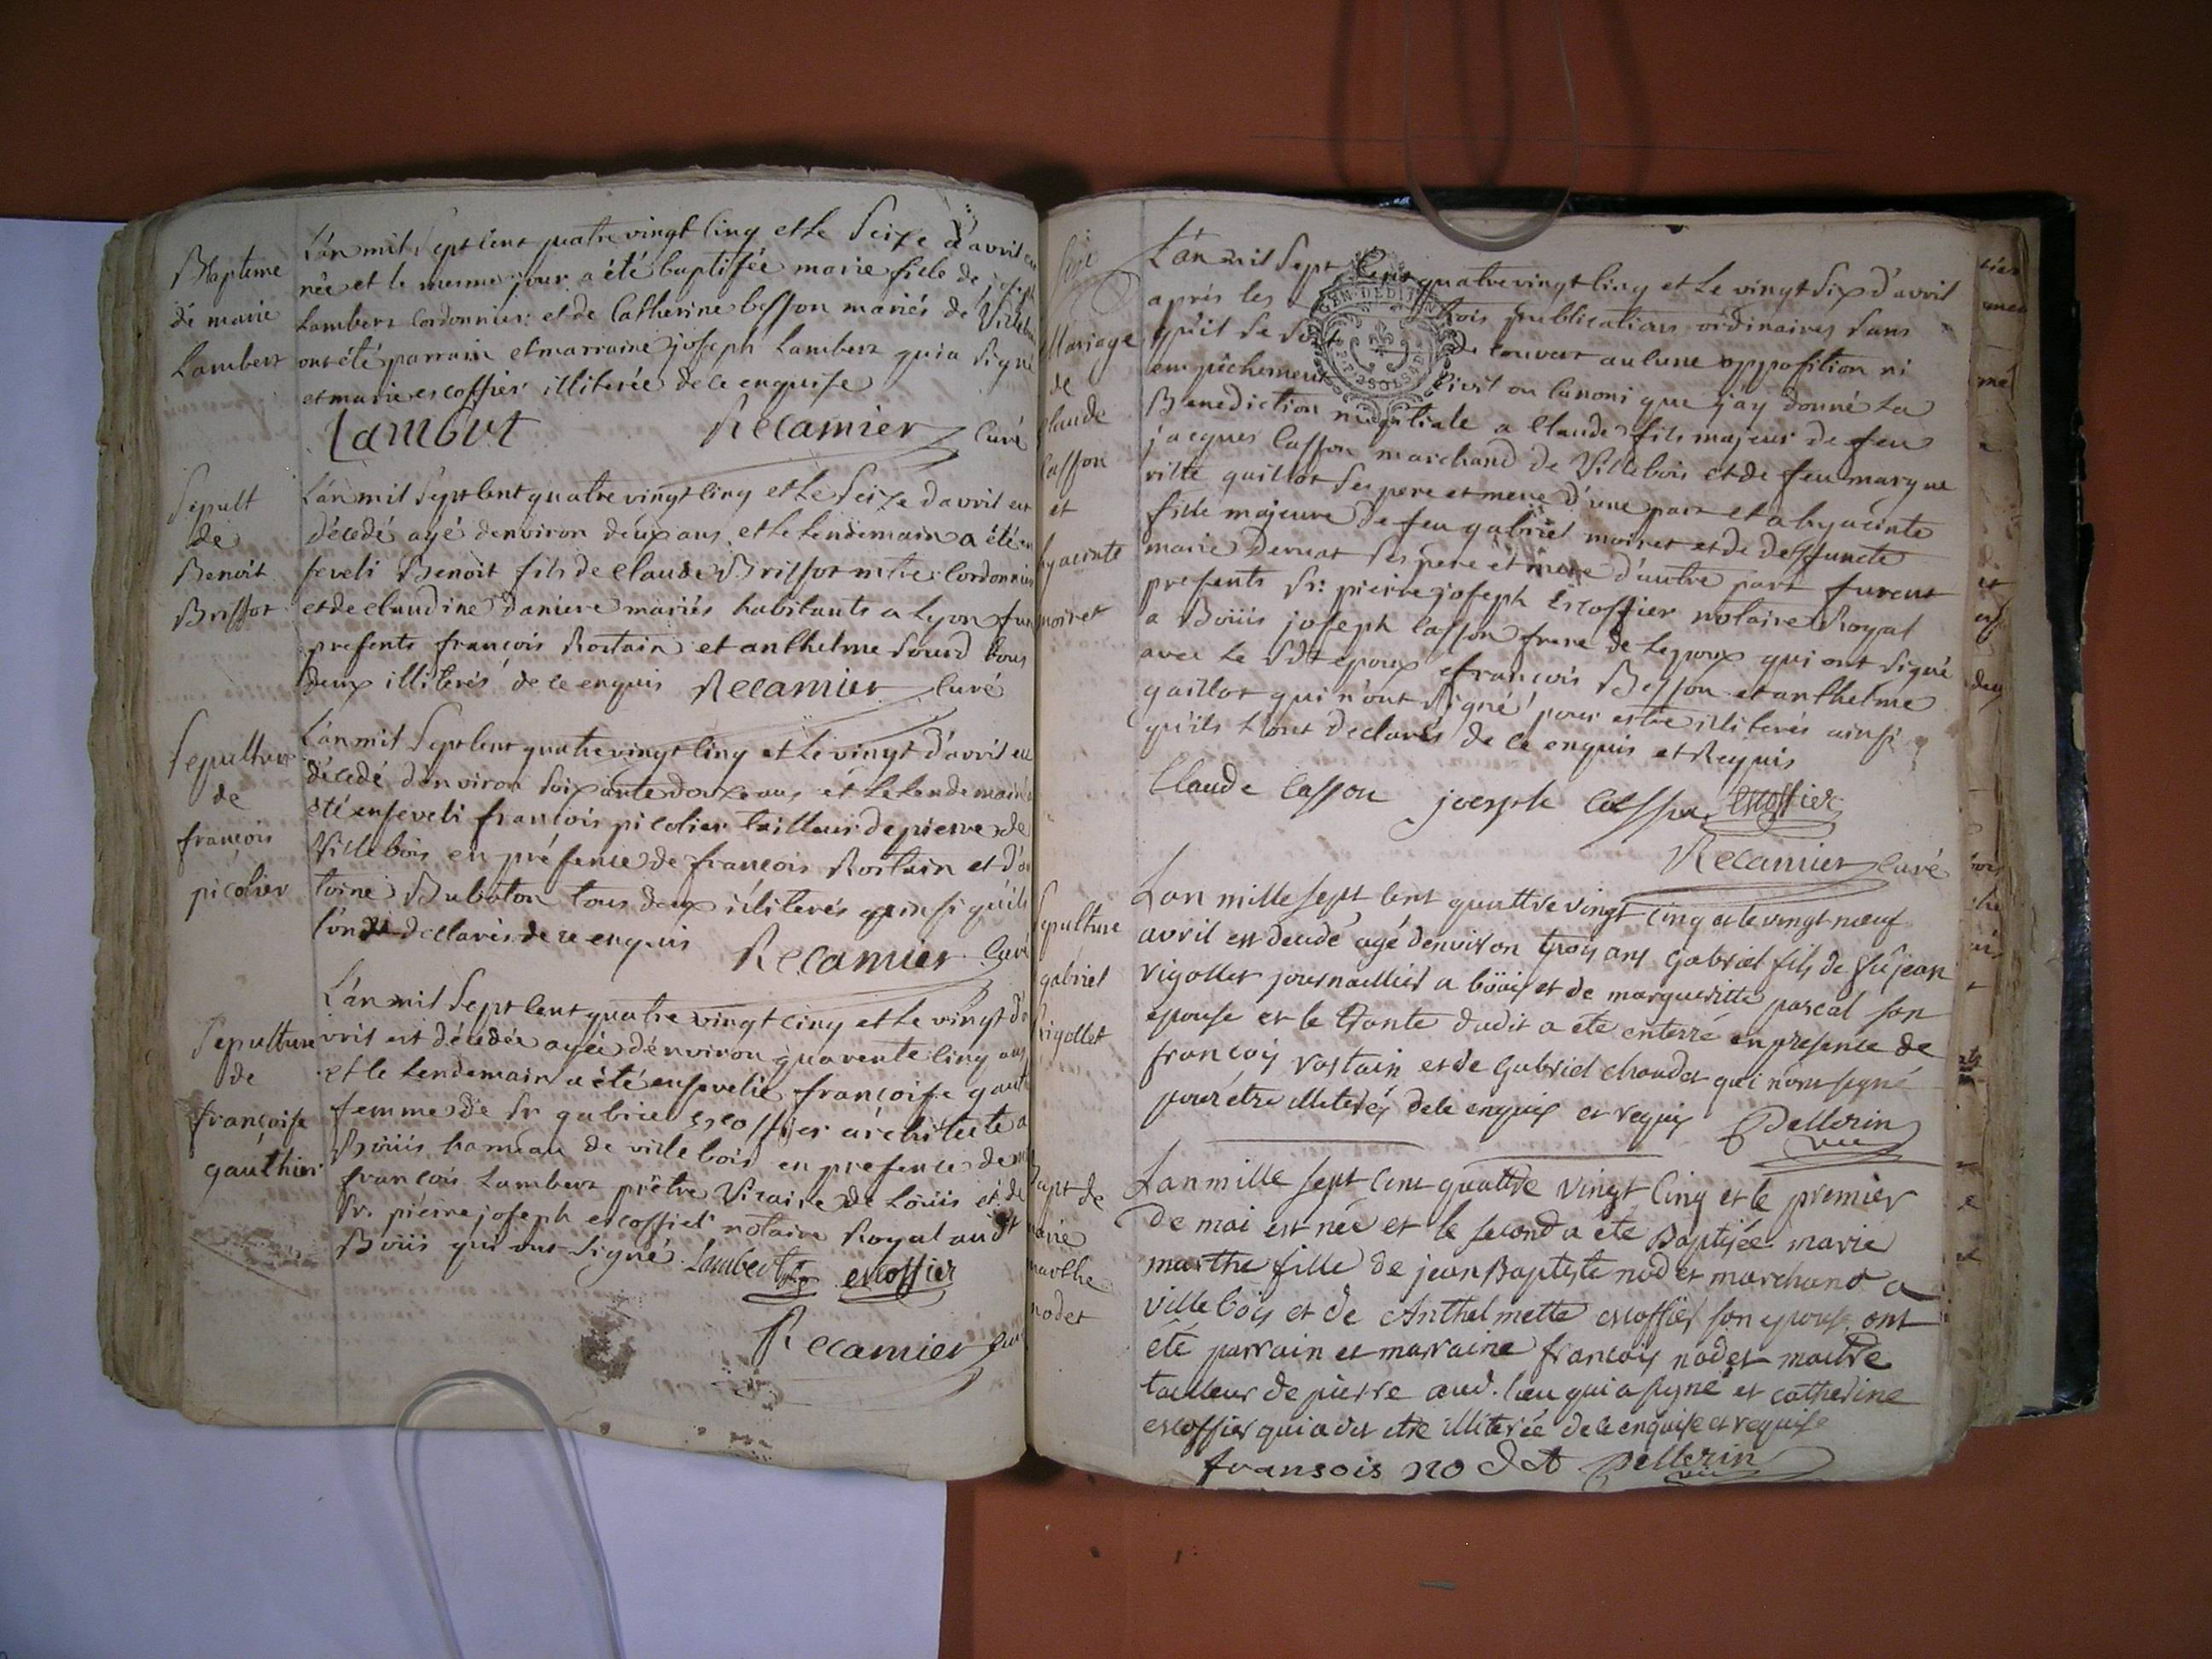 Bapteme
de marie
Lambert
L'an mil Sept Cent quatre vingt Cinq et le Seize d'avril est
née et le mesme jour a été baptisée marie fille de joseph
Lambert Cordonnier et de Catherine besson mariés de Villebois
ont été parrain et marraine joseph Lambert qui a Signé
et marie escoffier illiterée de ce enquise
Lambert Recamier Curé
Sepult
de
Benoit
Brissot
L'an mil Sept Cent quatre vingt Cinq et le Seize d'avril est
décedé agé denviron deux ans et le lendemain a été en
seveli Benoit fils de Claude Brissot mtre Cordonnier
et de claudine daniere mariés habitants a Lyon furent
presents françois Rostain et anthelme Sourd tous
deux illiterés de ce enquis Recamier Curé
Sepulture
de
françois
picolier
L'an mil Sept Cent quatre vingt Cinq et le vingt d'avril est
décedé d'environ Soixante douze ans et le lendemain a
été enseveli françois picolier tailleur de pierre de
Villebois en présence de françois Rostain et d'an
toine Bubaton tous deux illiterés ainsi qu'ils
l'ont declarés de ce enquis Recamier Curé
Sepulture
de
françoise
gauthier
L'an mil Sept Cent quatre vingt cinq et le vingt d'a
vril est décedée agée d'environ quarente Cinq ans
et le lendemain a été ensevelie françoise gauthier
femme de Sr gabriel escoffier architecte a
Boüis hameau de villebois en presence de
françois Lambert prêtre Vicaire de Loüis et de
Sr. pierre joseph escoffier notaire Royal audt
Boüis qui ont Signé Lambert escoffier
Recamier Curé
Mariage
de
Claude
Casson
et
hyacinte
moiret
L'an mil Sept Cent quatre vingt Cinq et Le vingt Six d'avril
aprés les trois publications ordinaires Sans
qu'il Se Soit de couvert aulune opposition ni
empêchement Civil ou Canonique j'ay donné La
Benediction nuptiale a Claude fils majeur de feu
jacques Casson marchand de Villebois et de feu margue
ritte gaillot Ses pere et mere d'une part et a hyacinte
fille majeure de feu gabriel moiret et de deffuncte
marie Dernat Ses pere et mere d'autre part furent
presents Sr: pierre joseph Escoffier notaire Royal
a Boüis joseph Casson frere de Lepoux qui ont signé
avec Le Sdt epoux françois Besson et anthelme
gaillot qui n'ont Signé pour estre illiterés ainsi
qu'ils L'ont Declarés de ce enquis et Requis
Claude Casson joesph Casson Escoffier
Recamier Curé
Sepulture
gabriel
rigollet
Lan mille sept cent quattre vingt cinq et le vingt nœuf
avril est decedé agé denviron trois ans gabriel fils de jean
rigollet journaillier a böüis et de margueritte pascal son
epouse et le trante dudit a eté enterré en presence de
françois rostain et de gabriel chaudet qui n'ont signé
pour être illiterés de ce enquis et requis Pellerin
vic
bapt de
marie
marthe
nodet
Lan mille sept cent quattre vingt cinq et le premier
de mai est née et le second a eté Baptisée marie
marthe fille de jean Baptiste nodet marchand a
villebois et de Anthelmette escoffier son epouse ont
été parrain et marraine françois nodet maitre
tailleur de pierre aud. lieu qui a signé et catherine
escoffier qui a dit etre illiterée de ce enquise et requise
fransois nodet Pellerin
vic